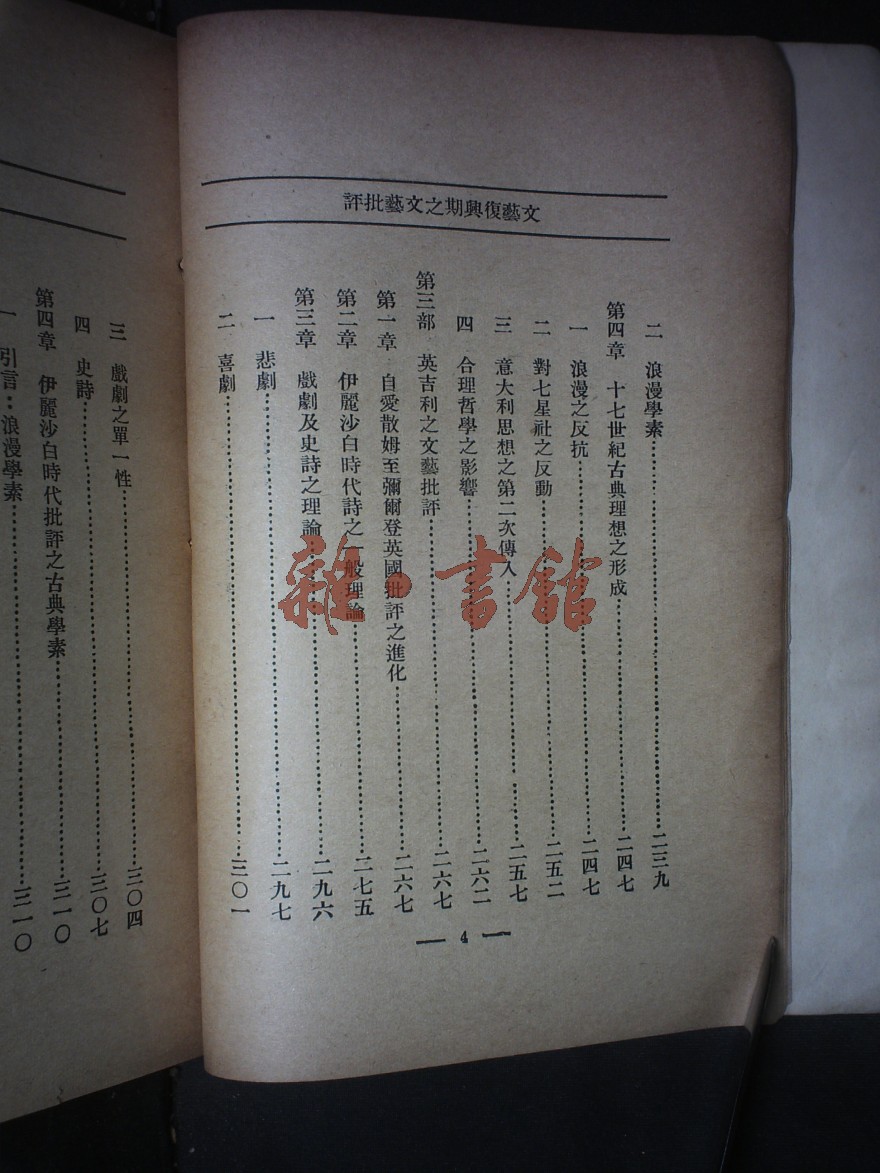 文藝復興期之文藝批評
二 浪漫學素……二三九
第四章 十七世紀古典理想之形成……二四七
一 浪漫之反抗……二四七
二 對七星社之反動……二五二
三 意大利思想之第二次傳入……二五七
四 合理哲學之影響……二六二
第三部 英吉利之文藝批評……二六七
第一章 自愛散姆至彌爾登英國批評之進化……二六七
第二章 伊麗沙白時代詩之一般理論……二七五
第三章 戲劇及史詩之理論……二九六
一 悲劇……二九七
二 喜劇……三〇一
— 4 —
三 戲劇之單一性……三〇四
四 史詩……三〇七
第四章 伊麗沙白時代批評之古典學素……三一〇
一 引言:浪漫學素……三一〇
雜·書館